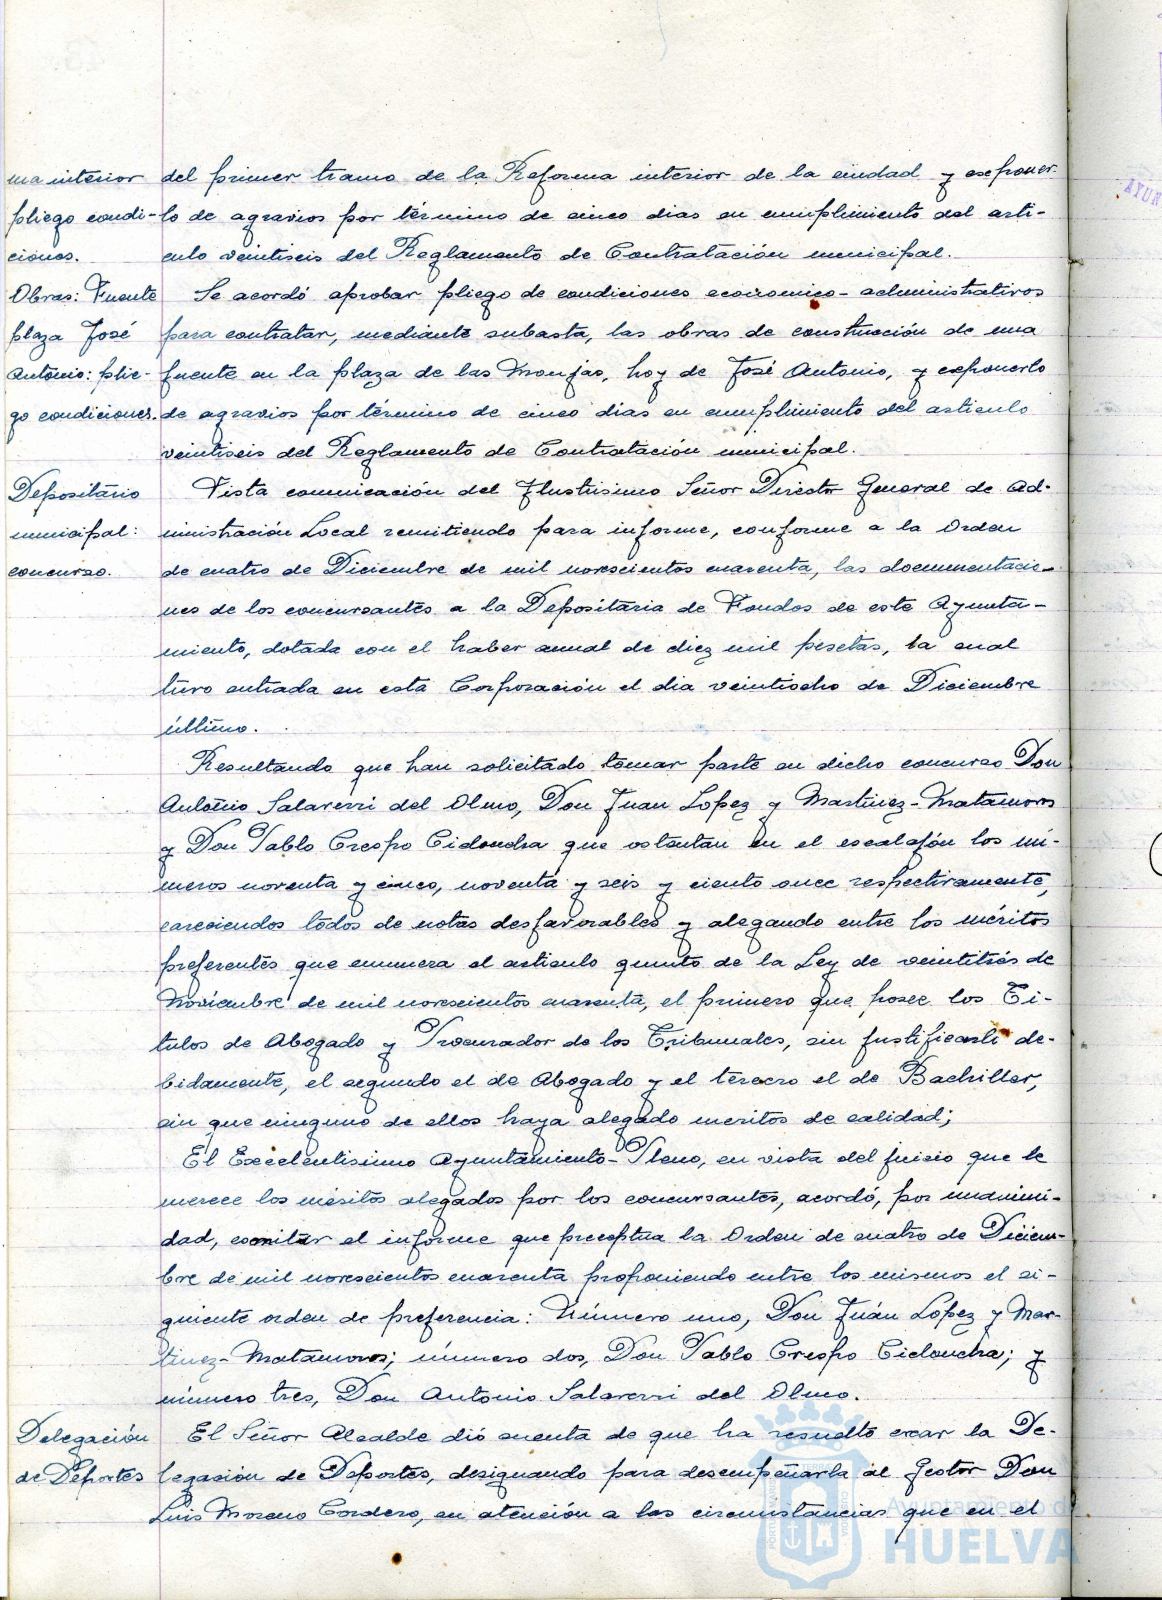 ma interior del primer tramo de la Reforma interior de la ciudad y exponer-
pliego condi- lo de agravios por término de cinco dias en cumplimiento del arti-
ciones. culo veintiseis del Reglamento de Contratación municipal.
Obras: Fuente Se acordó aprobar pliego de condiciones económico-administrativos
plaza José para contratar, mediante subasta, las obras de construcción de una
Antonio: plie- fuente en la plaza de las Monjas, hoy de José Antonio, y exponerlo
go condiciones. de agravios por término de cinco dias en cumplimiento del articulo
veintiseis del Reglamento de Contratación municipal.
Depositario Vista comunicación del Ilustrisimo Señor Director General de Ad-
municipal: ministración Local remitiendo para informe, conforme a la Orden
concurso. de cuatro de Diciembre de mil novescientos cuarenta, las documentacio-
nes de los concursantes a la Depositaria de Fondos de este Ayunta-
miento, dotada con el haber anual de diez mil pesetas, la cual
tuvo entrada en esta Corporación el dia veintiocho de Diciembre
último.
Resultando que han solicitado tomar parte en dicho concurso Don
Antonio Salaverri del Olmo, Don Juan Lopez y Martinez-Matamoros
y Don Pablo Crespo Cidoncha que ostentan en el escalafón los nú-
meros noventa y cinco, noventa y seis y ciento once respectivamente,
careciendos todos de notas desfavorables y alegando entre los méritos
preferentes que enumera el articulo quinto de la Ley de veintitrés de
Noviembre de mil novescientos cuarenta, el primero que posee los Ti-
tulos de Abogado y Procurador de los Tribunales, sin justificarlo de-
bidamente, el segundo el de Abogado y el tercero el de Bachiller,
sin que ninguno de ellos haya alegado meritos de calidad;
El Excelentisimo Ayuntamiento-Pleno, en vista del juicio que le
merece los méritos alegados por los concursantes, acordó, por unanimi-
dad, emitir el informe que preceptua la Orden de cuatro de Diciem-
bre de mil novescientos cuarenta proponiendo entre los mismos el si-
guiente orden de preferencia: Número uno, Don Juán Lopez y Mar-
tinez-Matamoros; número dos, Don Pablo Crespo Cidoncha; y
número tres, Don Antonio Salaverri del Olmo.
Delegación El Señor Alcalde dió cuenta de que ha resuelto crear la De-
de Deportes legasión de Deportes, designando para desempeñarla al Gestor Don
Luis Moreno Cordero, en atención a las circunstancias que en el
Ayuntamiento de
HUELVA
AYUN